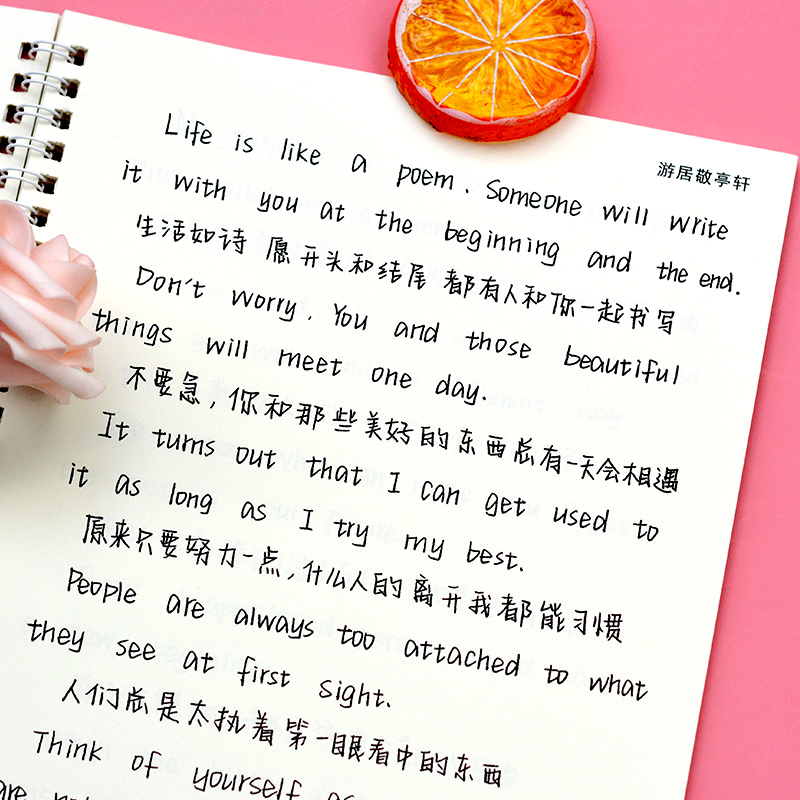 游居敬亭轩
Life is like a poem. Someone will write
it with you at the beginning and the end.
生活如诗 愿开头和结尾 都有人和你一起书写
Don't worry. You and those beautiful
things will meet one day.
不要急，你和那些美好的东西总有一天会相遇
It turns out that I can get used to
it as long as I try my best.
原来只要努力一点，什么人的离开我都能习惯
People are always too attached to what
they see at first sight.
人们总是太执着第一眼看中的东西
Think of yourself as
are